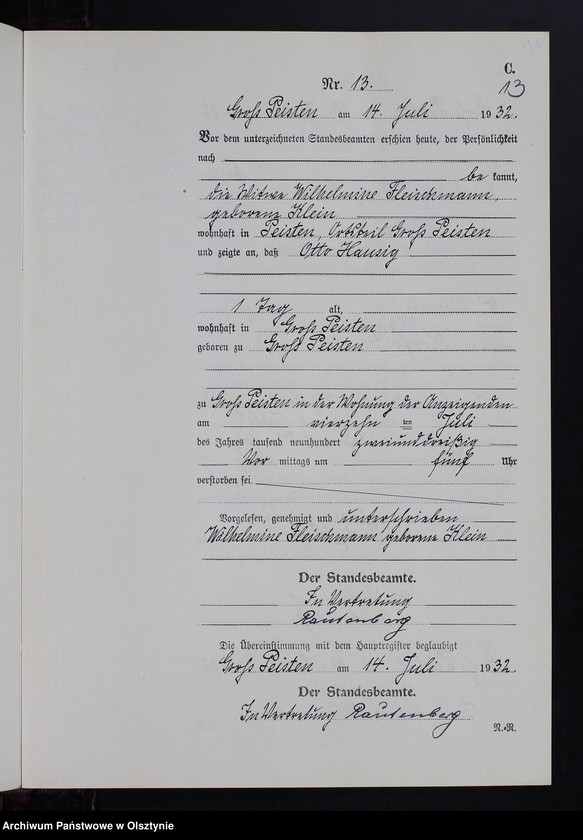 C.
Nr. 13.
13
Groß Peisten am 14. Juli 1932.
Vor dem unterzeichneten Standesbeamten erschien heute, der Persönlichkeit
nach
be kannt,
die Witwe Wilhelmine Fleischmann,
geborene Klein
wohnhaft in Peisten, Ortsteil Groß Peisten
und zeigte an, daß Otto Hausig
1 Tag alt,
wohnhaft in Groß Peisten
geboren zu Groß Peisten
zu Groß Peisten in der Wohnung der Anzeigenden
am vierzehn ten Juli
des Jahres tausend neunhundert zweiunddreißig
Vor mittags um fünf Uhr
verstorben sei.
Vorgelesen, genehmigt und unterschrieben
Wilhelmine Fleischmann geborene Klein
Der Standesbeamte.
In Vertretung
Rautenberg
Die Übereinstimmung mit dem Hauptregister beglaubigt
Groß Peisten am 14. Juli 1932.
Der Standesbeamte.
In Vertretung Rautenberg
N.-R.
Archiwum Państwowe w Olsztynie